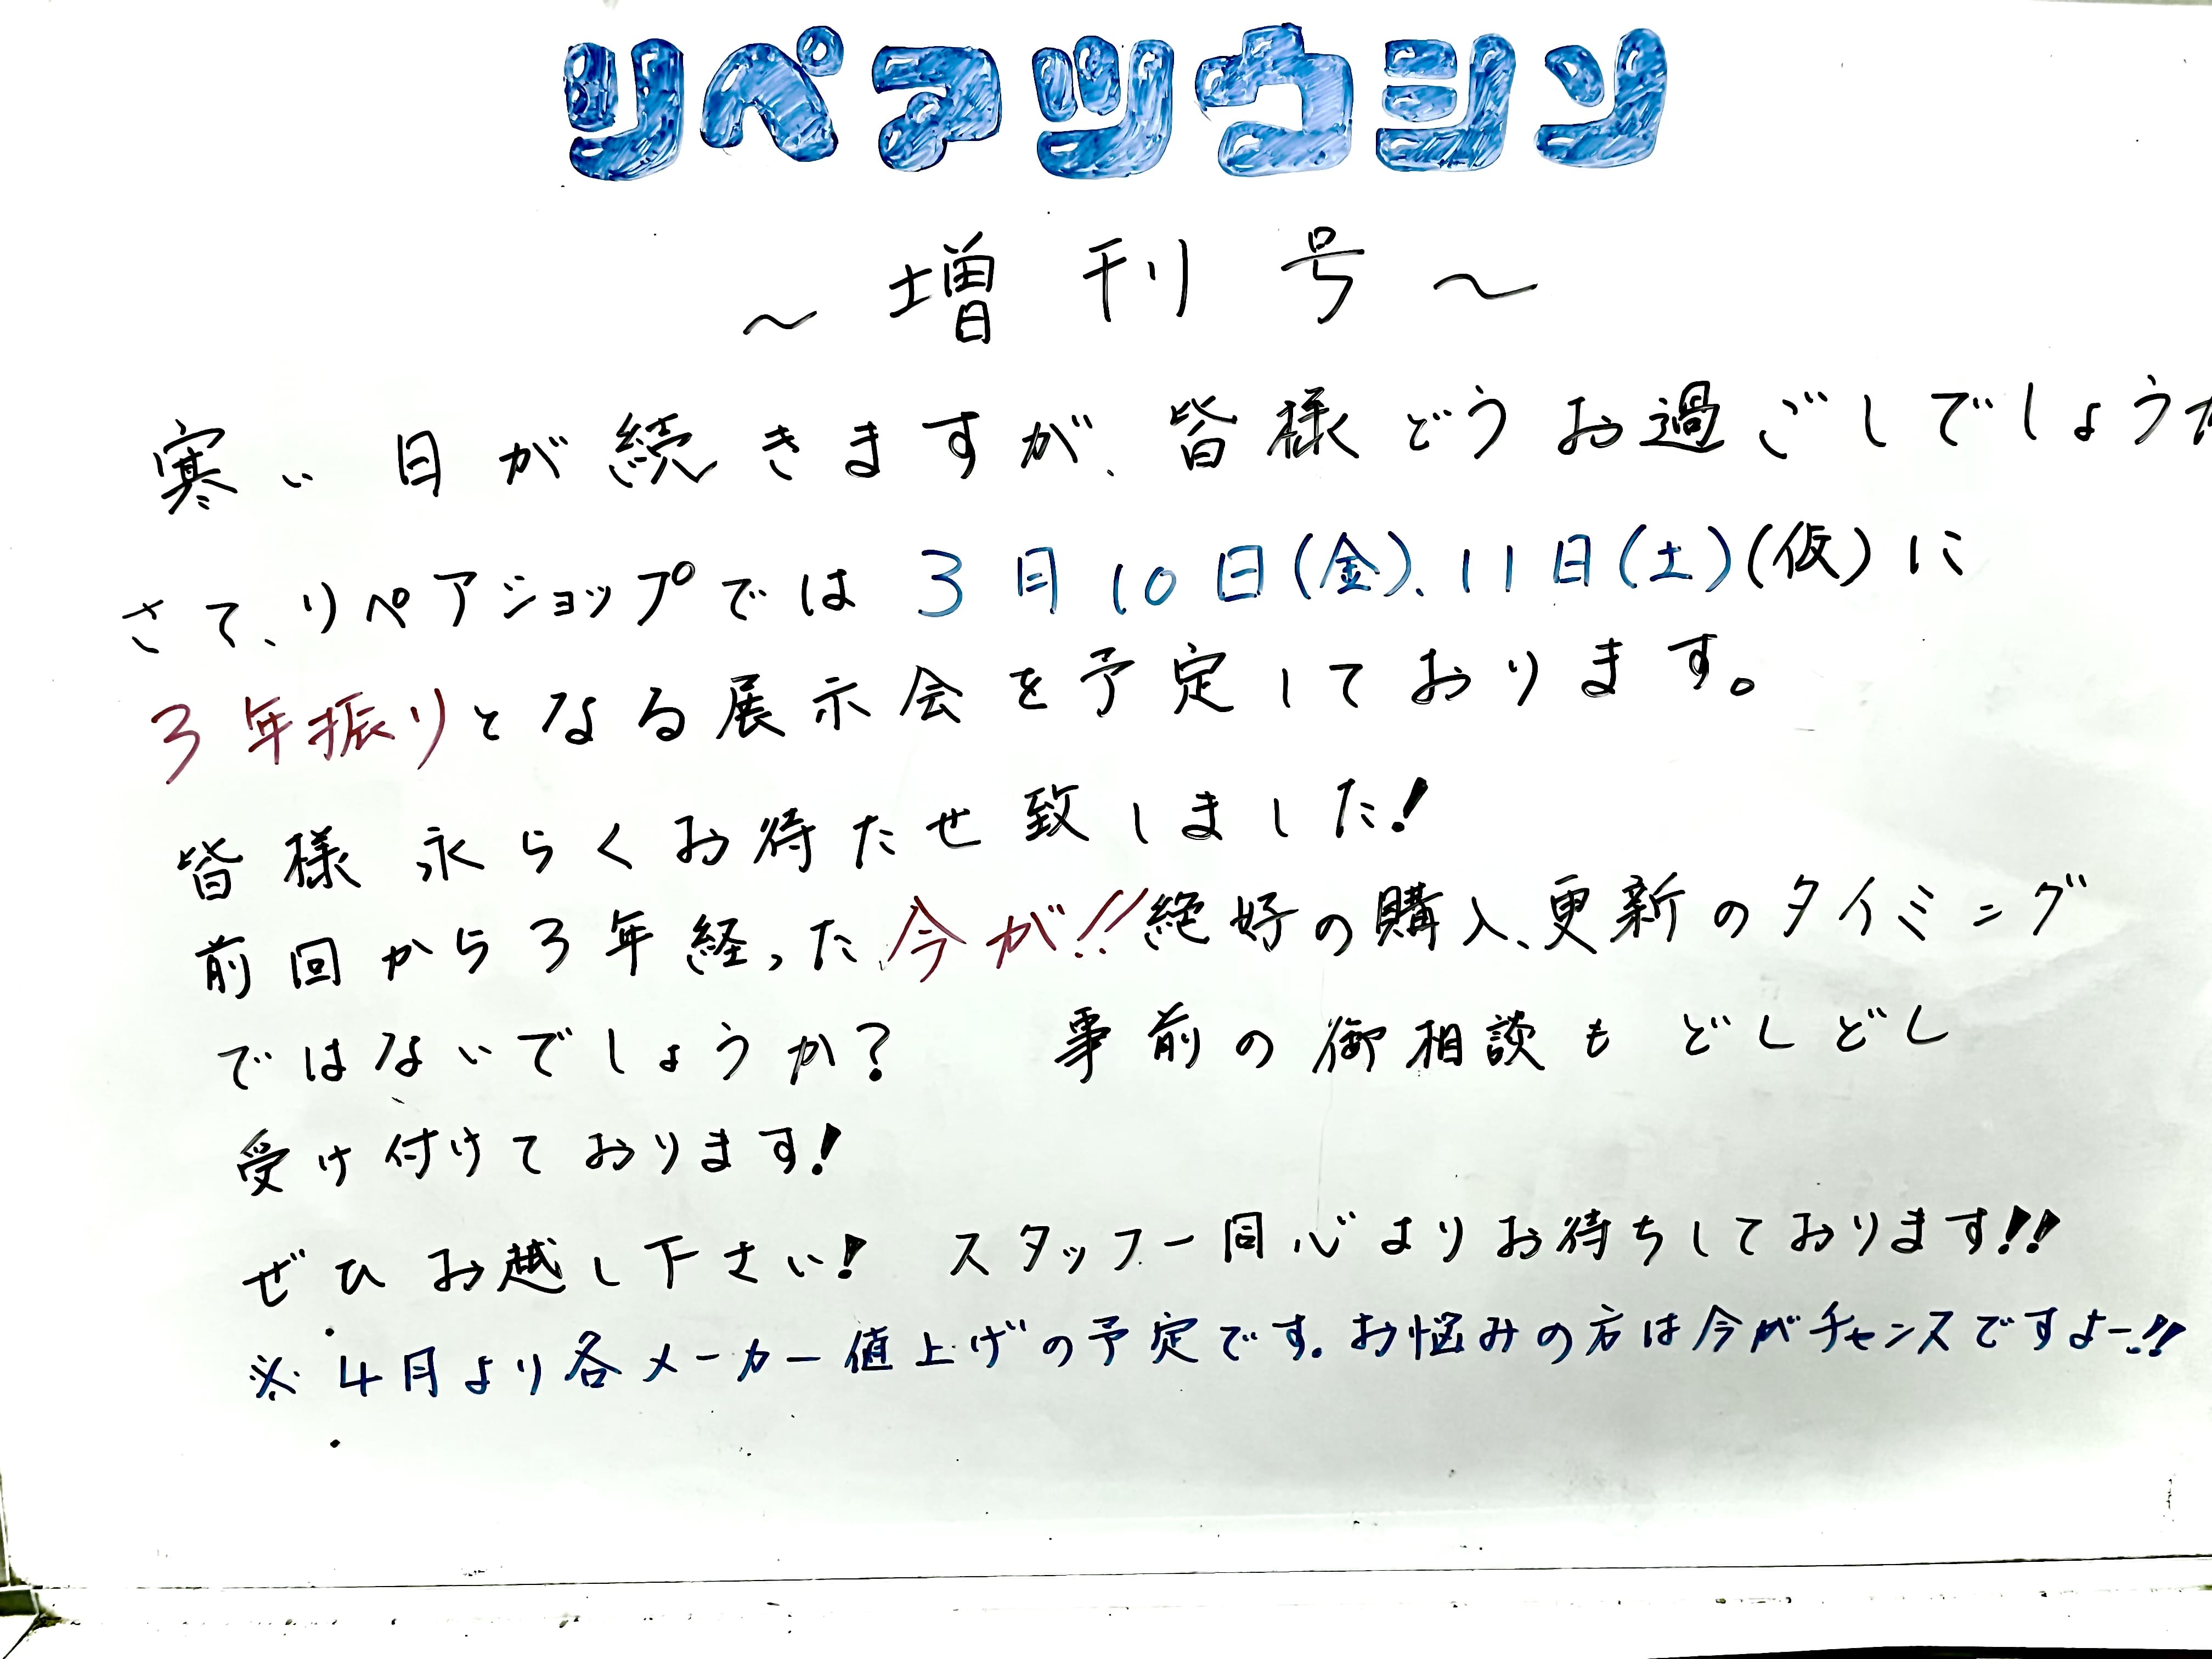 リペアツウシン
～増刊号～
寒い日が続きますが、皆様どうお過ごしでしょうか
さて、リペアショップでは3月10日(金)、11日(土)(仮)に
3年振りとなる展示会を予定しております。
皆様永らくお待たせ致しました!
前回から3年経った今が!!絶好の購入、更新のタイミング
ではないでしょうか? 事前の御相談もどしどし
受け付けております!
ぜひお越し下さい! スタッフ一同心よりお待ちしております!!
※4月より各メーカー値上げの予定です。お悩みの方は今がチャンスですよー!!